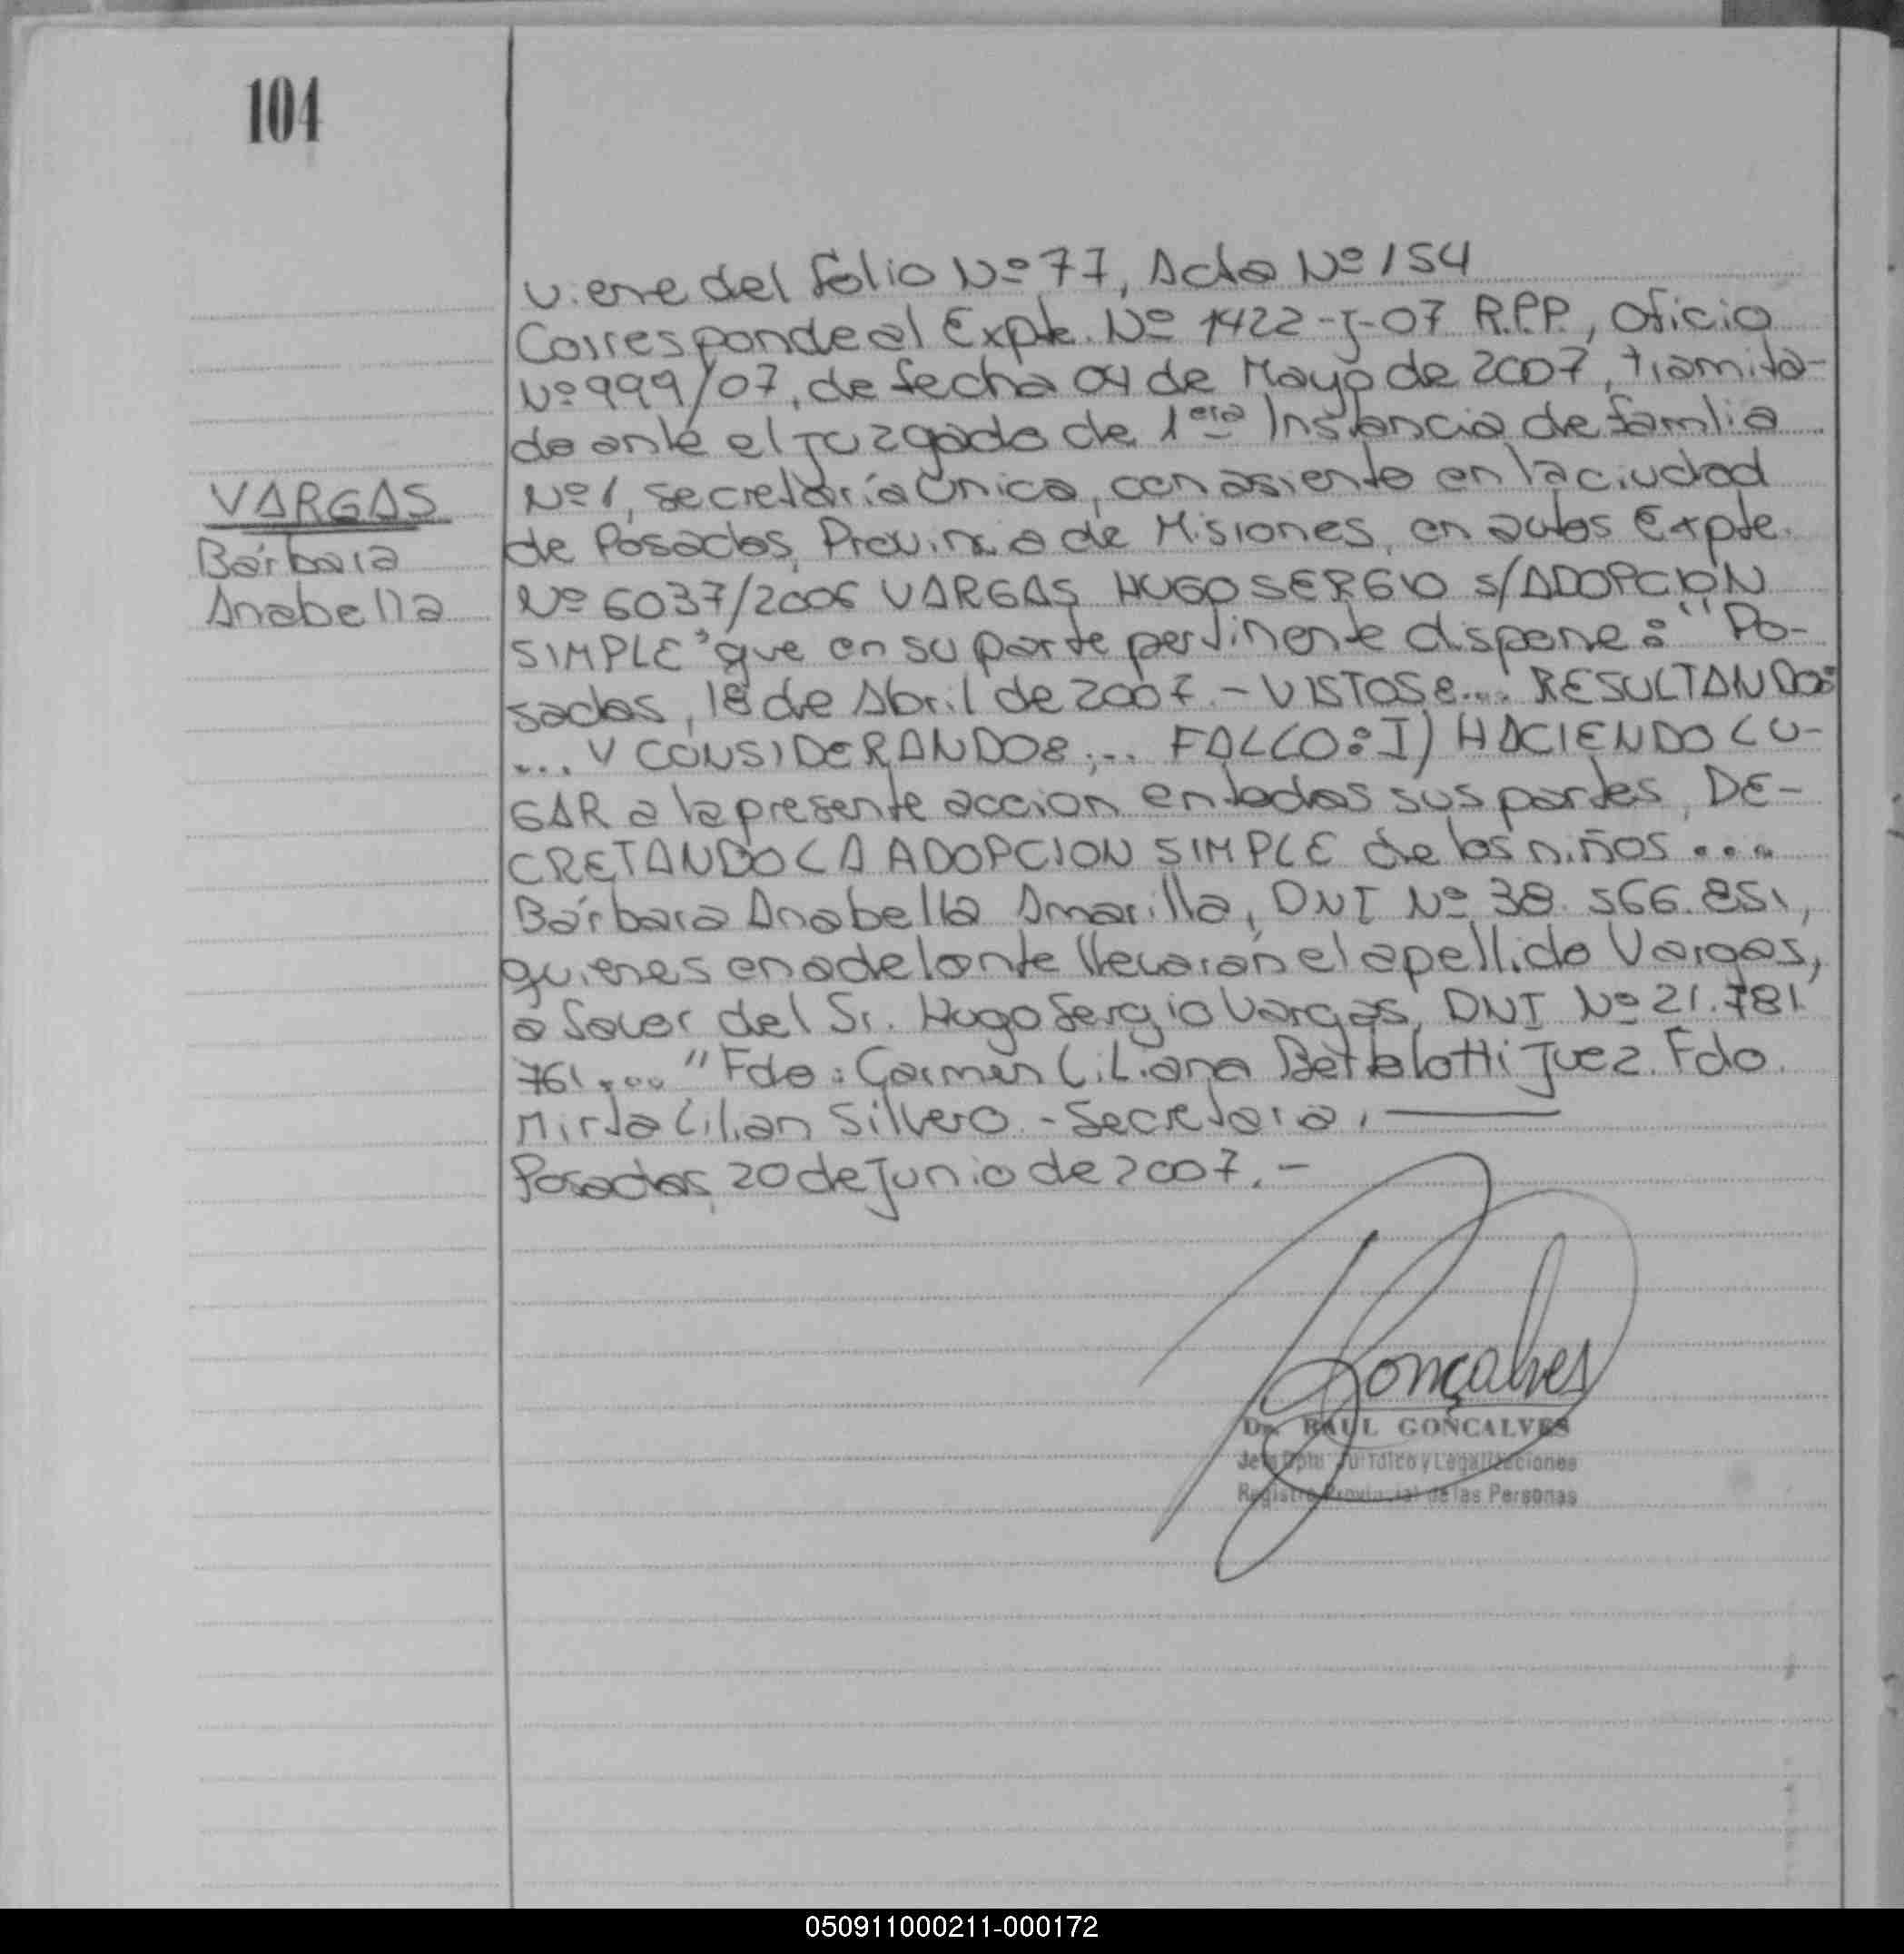 104
Viene del folio Nº 77, Acta Nº 154
Corresponde al Expte. Nº 1422-J-07 R.P.P., Oficio
Nº 999/07, de fecha 04 de Mayo de 2007, tramita-
do ante el Juzgado de 1era Instancia de familia
Nº 1, secretaría Única, con asiento en la ciudad
de Posadas, Provincia de Misiones, en autos Expte.
Nº 6037/2006 VARGAS HUGO SERGIO S/ADOPCION
SIMPLE" que en su parte pertinente dispone: "Po-
sadas, 18 de Abril de 2007.- VISTOS:... RESULTANDO:
... Y CONSIDERANDO:... FALLO: I) HACIENDO LU-
GAR a la presente accion en todas sus partes, DE-
CRETANDO LA ADOPCION SIMPLE de los niños ...
Bárbara Anabella Amarilla, DNI Nº 38.566.851,
quienes en adelante llevarán el apellido Vargas,
a favor del Sr. Hugo Sergio Vargas, DNI Nº 21.781.
761...." Fdo: Carmen Liliana Bettolotti Juez. Fdo.
Mirta Lilian Silvero - Secretaria.
Posadas, 20 de Junio de 2007.-
VARGAS
Bárbara
Anabella
Gonçalves
Dr. RAUL GONCALVES
Jefe Dpto Juridico y Legalizaciones
Registro Provincial de las Personas
050911000211-000172